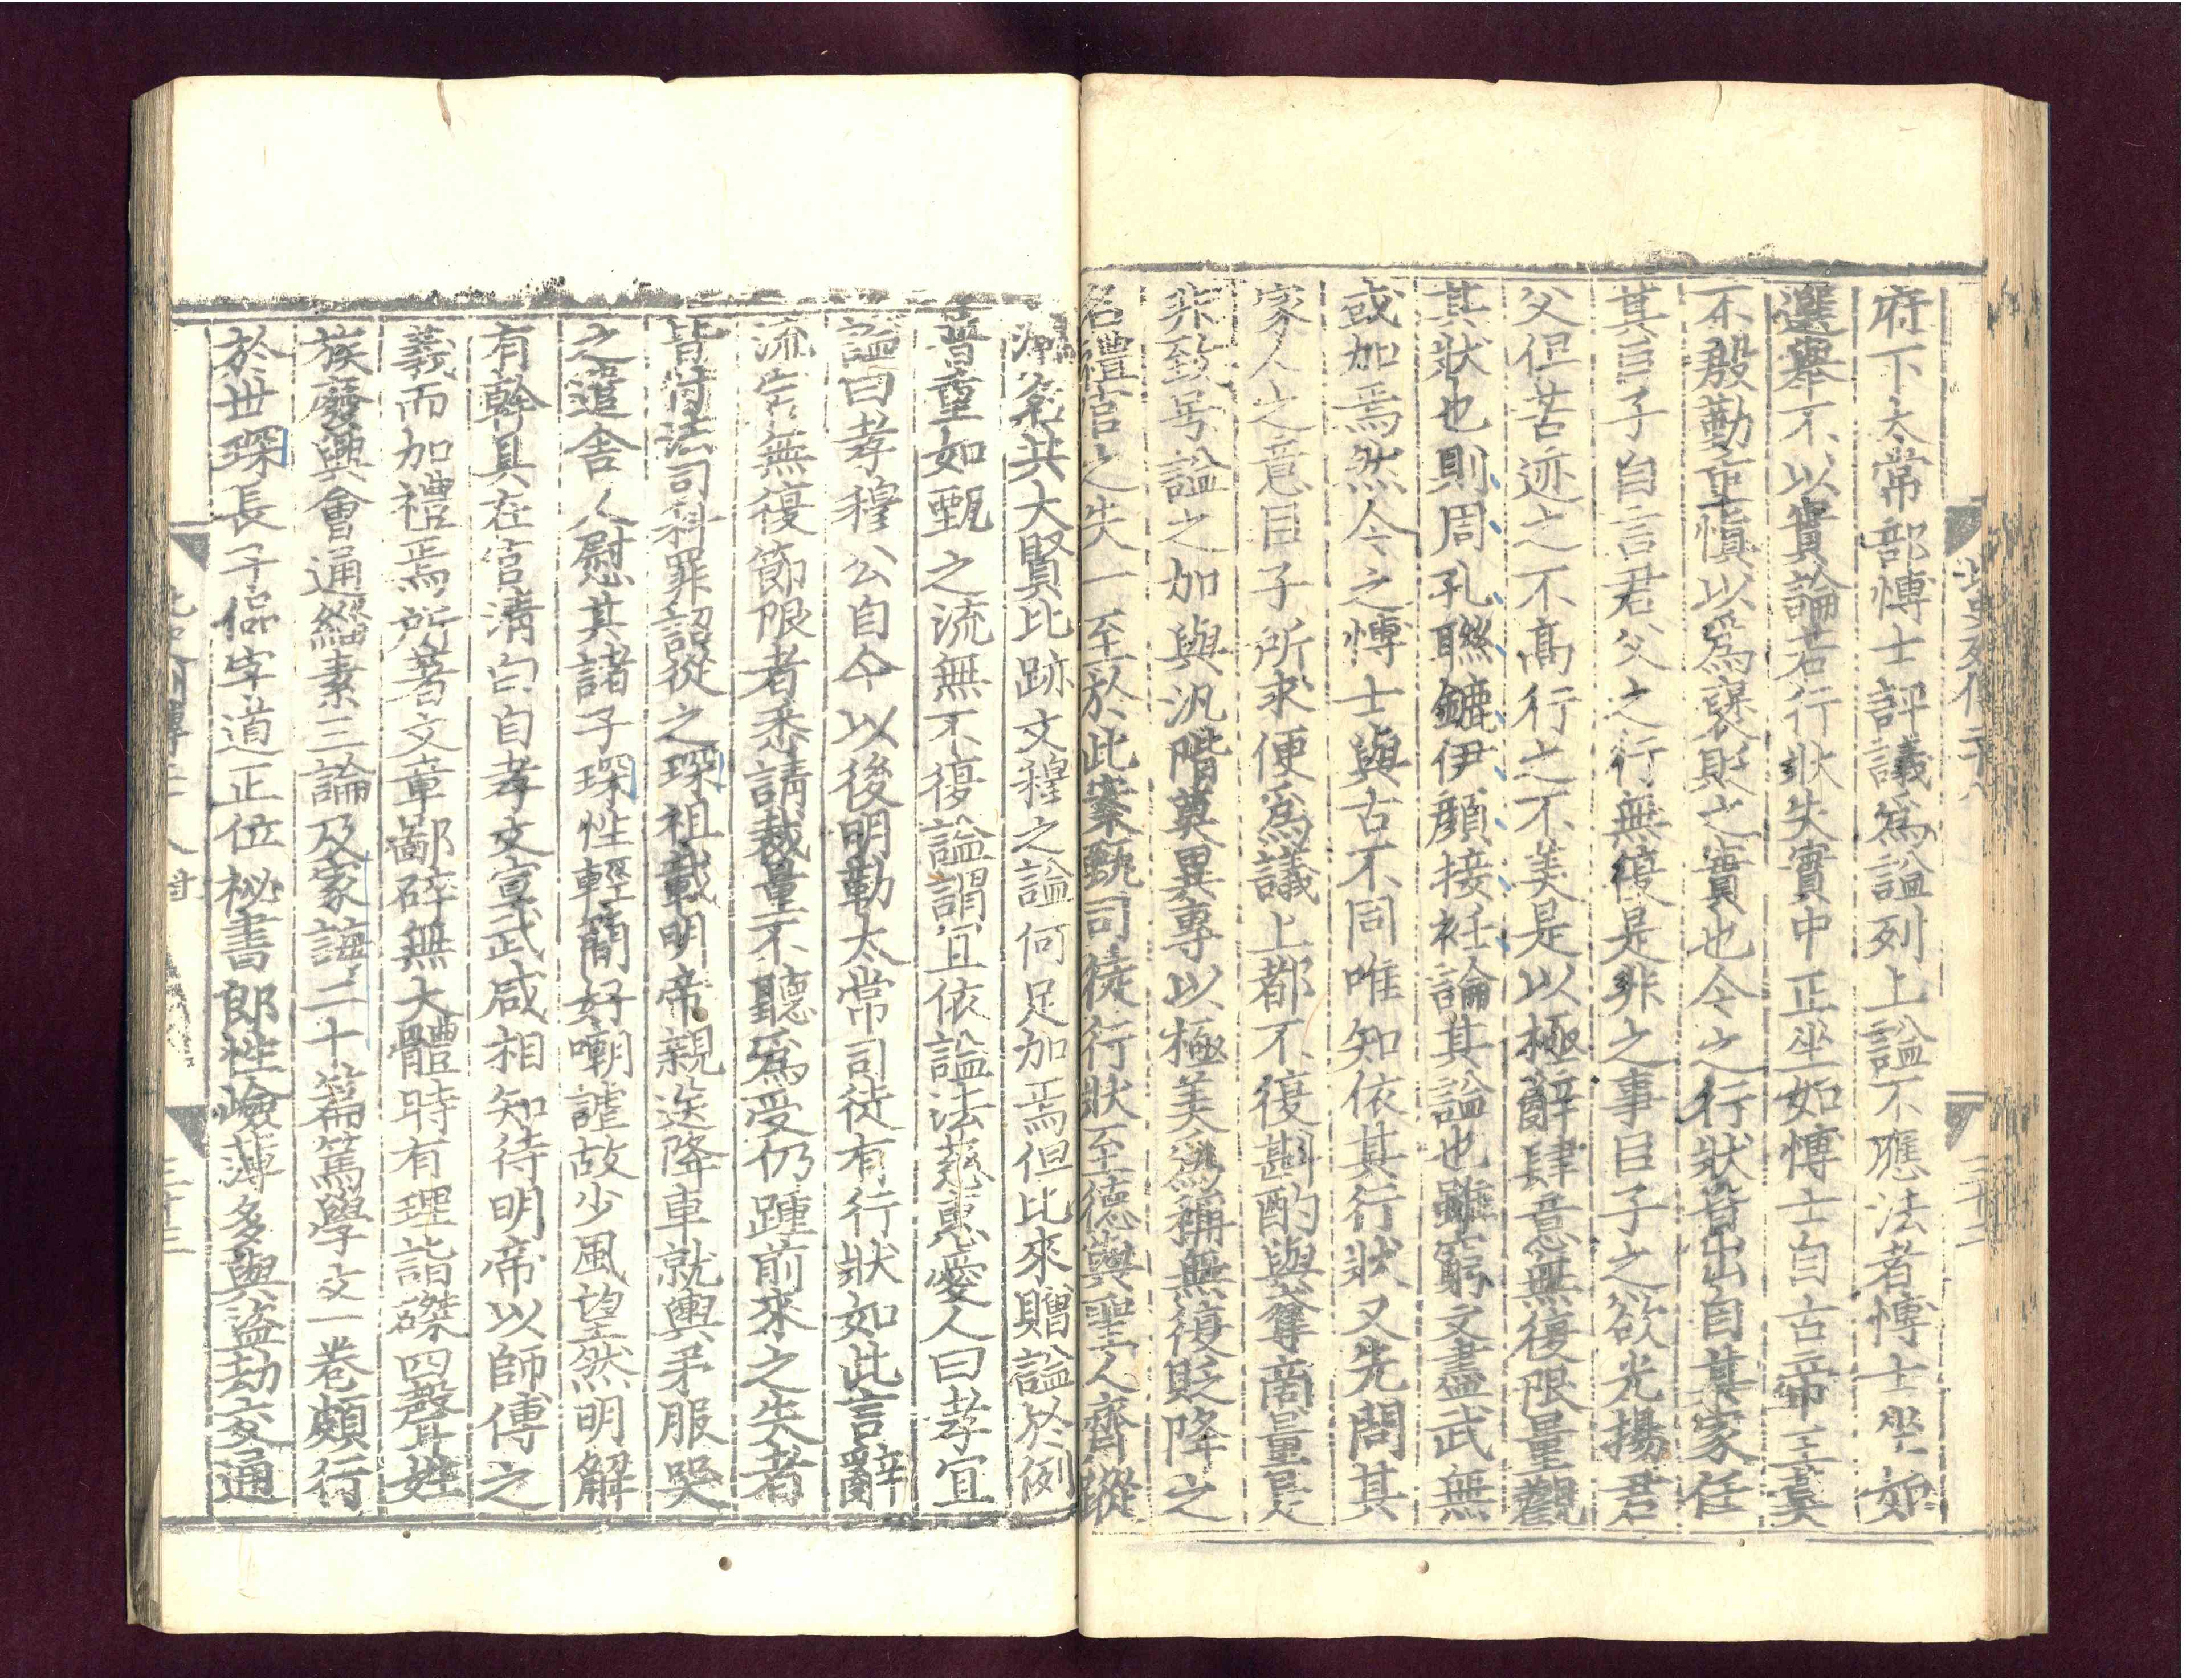 北史列傳二十八
三十二
府下太常部愽士評議爲謚列上謚不應法者愽士坐如
選舉不以實論若行狀失實中正坐如愽士自古帝王莫
不殷勤重慎以爲襃貶之實也今之行狀皆出自其家任
其臣子自言君父之行無復是非之事臣子之欲光揚君
父但苦迹之不髙行之不美是以極辭肆意無復限量觀
其狀也則周孔聮鑣伊顔接衽論其謚也雖窮文盡武無
或加焉然今之愽士與古不同唯知依其行狀又先問其
家人之意臣子所求便爲議上都不復斟酌與奪商量是
非致号謚之加與汎階莫異專以極美爲稱無復貶降之
名禮官之失一至於此案甄司徒行狀至德與聖人齊蹤
鴻名共大賢比跡文穆之謚何足加焉但比來贈謚於例
普重如甄之流無不復謚謂宜依謚法慈惠愛人曰孝宜
謚曰孝穆公自今以後明勒太常司徒有行狀如此言辭
流宕無復節限者悉請裁量不聽爲受仍踵前來之失者
皆付法司科罪詔從之琛祖載明帝親送降車就輿弔服哭
之遣舍人慰其諸子琛性輕簡好嘲謔故少風望然明解
有幹具在官清白自孝文宣武咸相知待明帝以師傅之
義而加禮焉所著文章鄙碎無大體時有理詣磔四聲姓
族廢興會通緇素三論及家誨二十篇篤學文一卷頗行
於世琛長子侃字道正位秘書郎性險薄多與盜劫交通
三十三